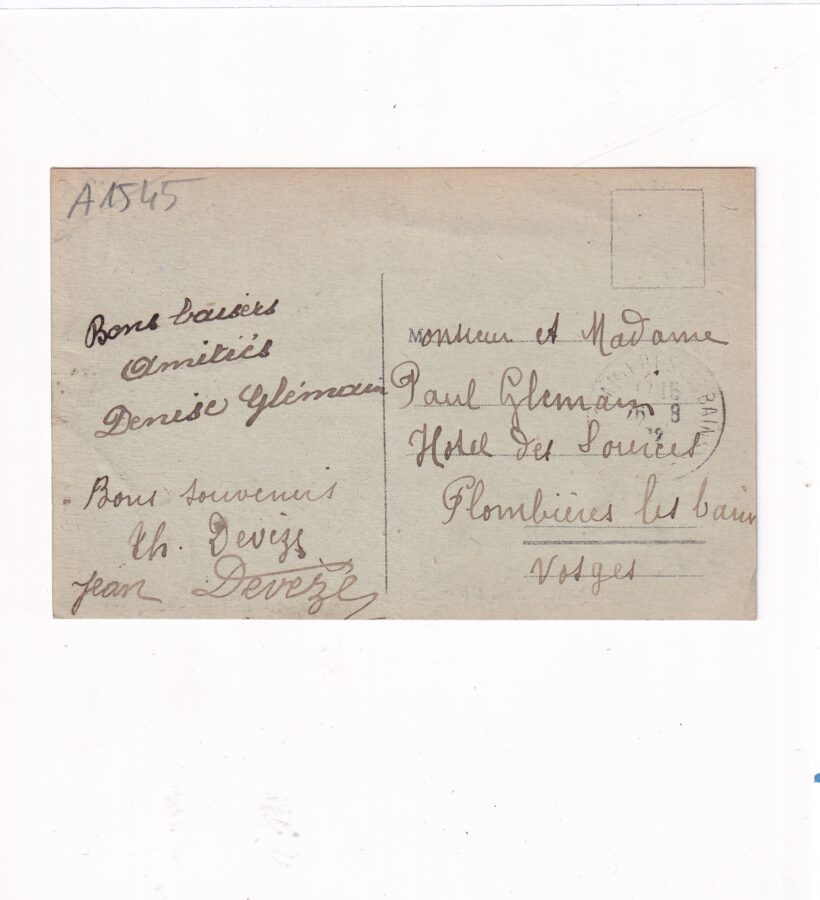 A1545
Bons baisers
Amitiés
Denise Glémain
Bons souvenirs
Th. Devèze
Jean Devezé
Monsieur et Madame
Paul Glemain
Hotel des Sources
Plombières les bains
Vosges
BAIN